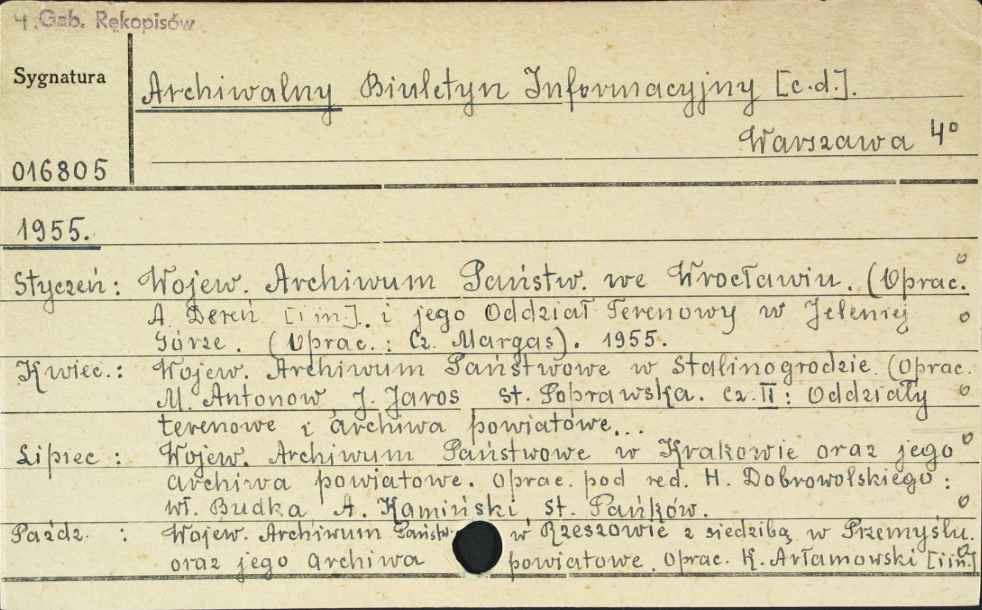 4. Gab. Rękopisów
Sygnatura
Archiwalny Biuletyn Informacyjny [c.d].
Warszawa 4°
016805
1955.
Styczeń: Wojew. Archiwum Państw. we Wrocławiu. (Oprac.
A. Dereń [i in.]. i jego Oddział Terenowy w Jeleniej
Górze. (Oprac.: Cz. Margas). 1955.
Kwiec.: Wojew. Archiwum Państwowe w Stalinogrodzie. (Oprac.
M. Antonow, J. Jaros St. Poprawska. Cz. II: Oddziały
terenowe i archiwa powiatowe...
Lipiec: Wojew. Archiwum Państwowe w Krakowie oraz jego
archiwa powiatowe. Oprac. pod red. H. Dobrowolskiego:
wł. Budka A. Kamiński, St. Pańków.
Paźdz.: Wojew. Archiwum Państw. w Rzeszowie z siedzibą w Przemyślu.
oraz jego archiwa powiatowe. Oprac. K. Arłamowski [i in.]